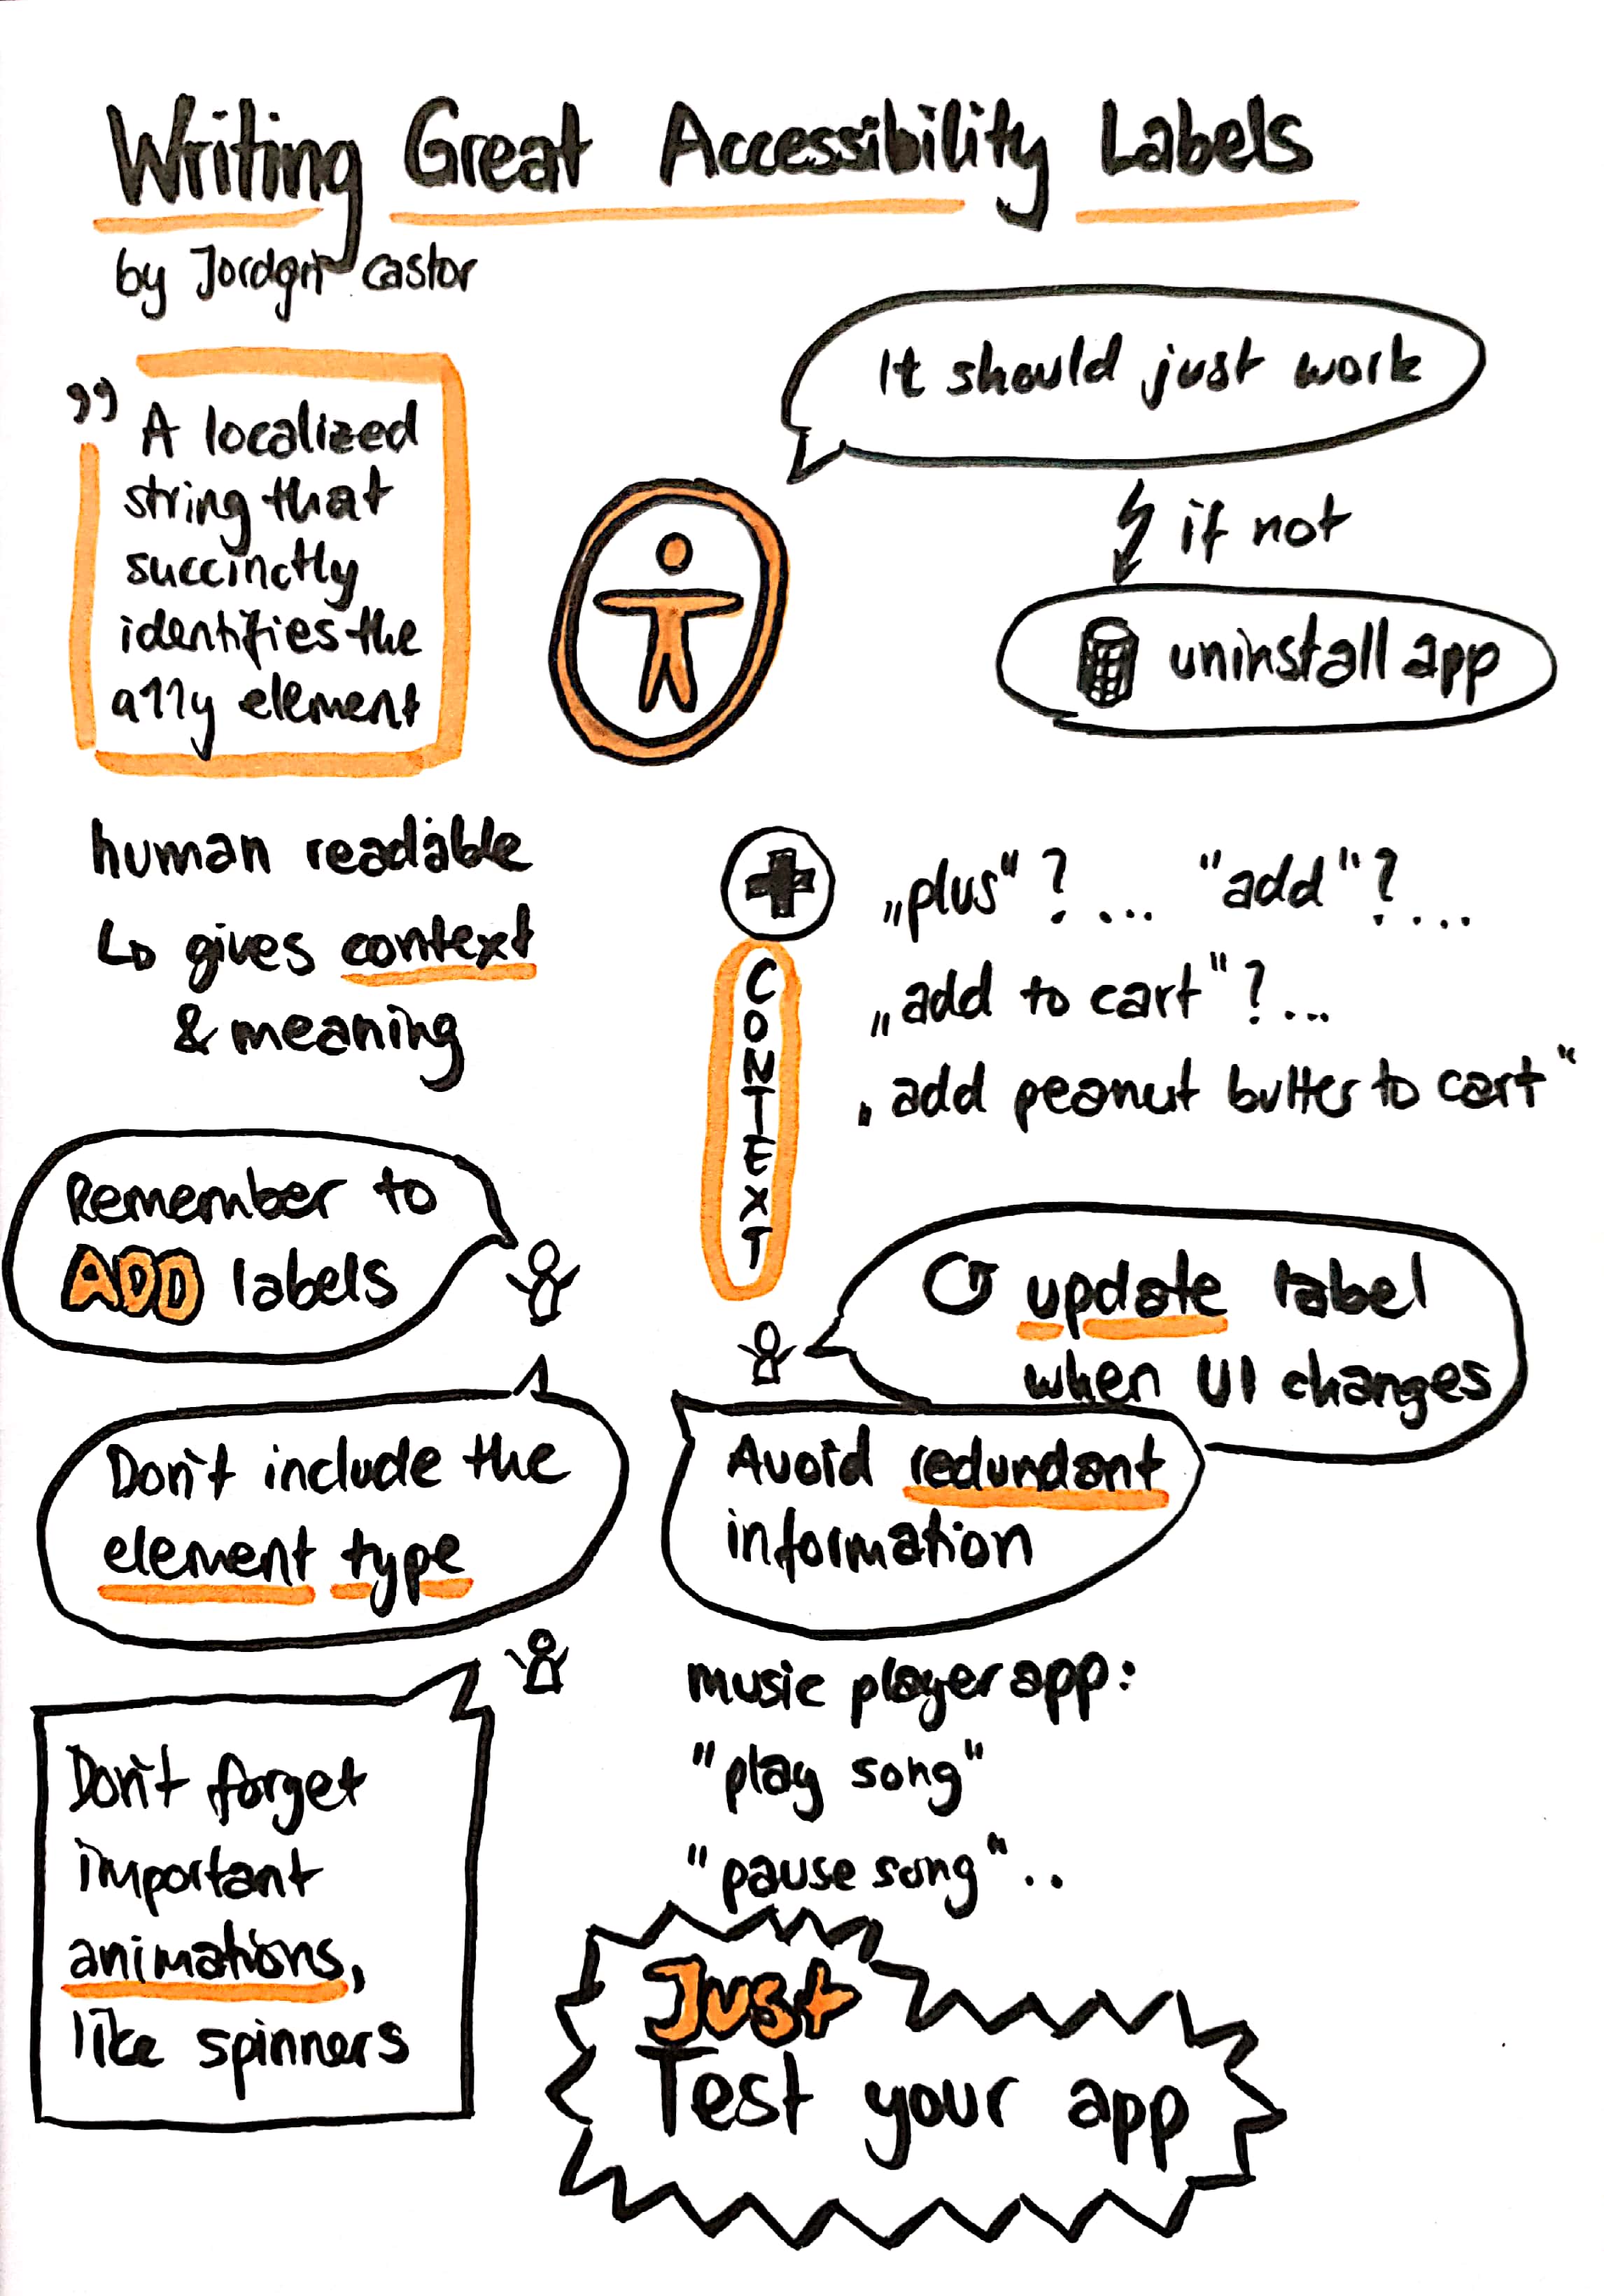 Writing Great Accessibility Labels
by Jordyn Castor
„ A localized
string that
succinctly
identifies the
a11y element
It should just work
if not
uninstall app
human readable
↳ gives context
& meaning
„plus"? ... "add"? ...
„add to cart"? ...
„add peanut butter to cart"
CONTEXT
Remember to
ADD labels
update label
when UI changes
Don't include the
element type
Avoid redundant
information
music player app:
"play song"
"pause song"..
Don't forget
important
animations,
like spinners
Just
Test your app